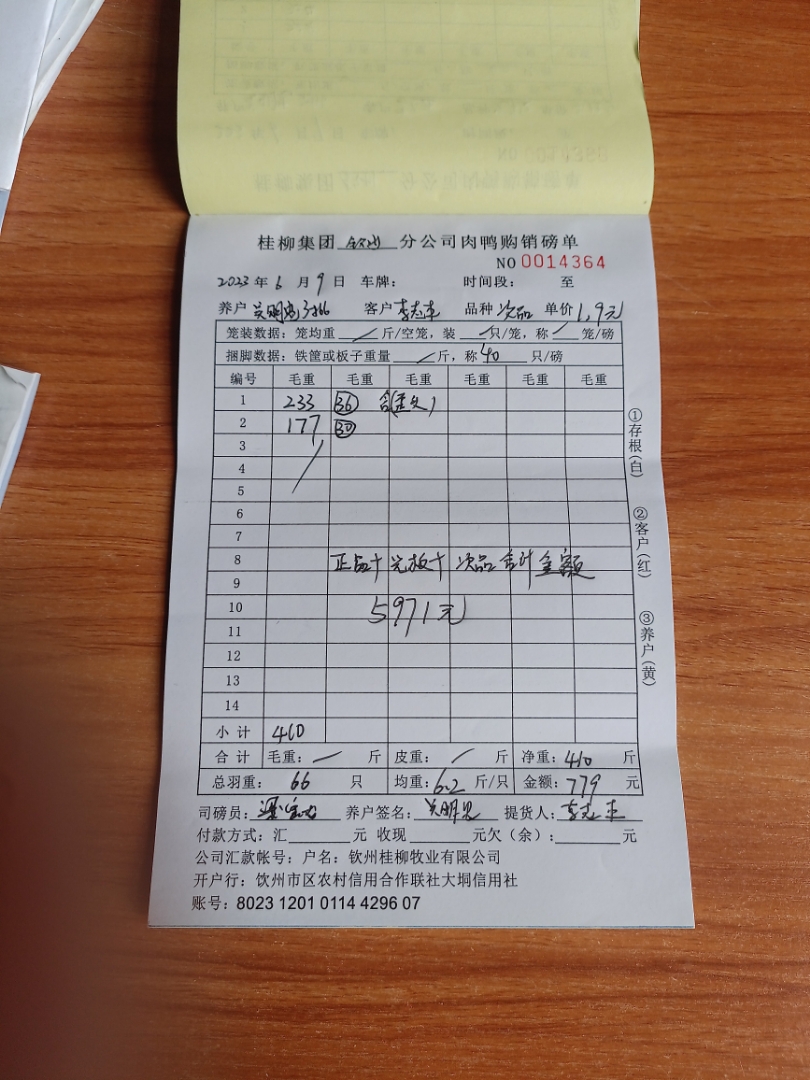 桂柳集团 钦州 分公司肉鸭购销磅单
NO 0014364
2023 年 6 月 9 日 车牌： 时间段： 至
养户 客户 李志车 品种 次品 单价 1.9元
笼装数据：笼均重 / 斤/空笼，装 / 只/笼，称 / 笼/磅
捆脚数据：铁筐或板子重量 / 斤，称 40 只/磅
编号 毛重 毛重 毛重 毛重 毛重 毛重
1 233 36
2 177 30
3
4
5
6
7
8 正品十光板十次品合计金额
9
10 5971元
11
12
13
14
小计 410
合计 毛重： / 斤 皮重： / 斤 净重：410 斤
总羽重： 66 只 均重：6.2 斤/只 金额：779 元
司磅员： 养户签名： 提货人：李志车
付款方式：汇 元 收现 元欠（余）： 元
公司汇款帐号：户名：钦州桂柳牧业有限公司
开户行：饮州市区农村信用合作联社大垌信用社
账号：8023 1201 0114 4296 07
①存根（白）
②客户（红）
③养户（黄）